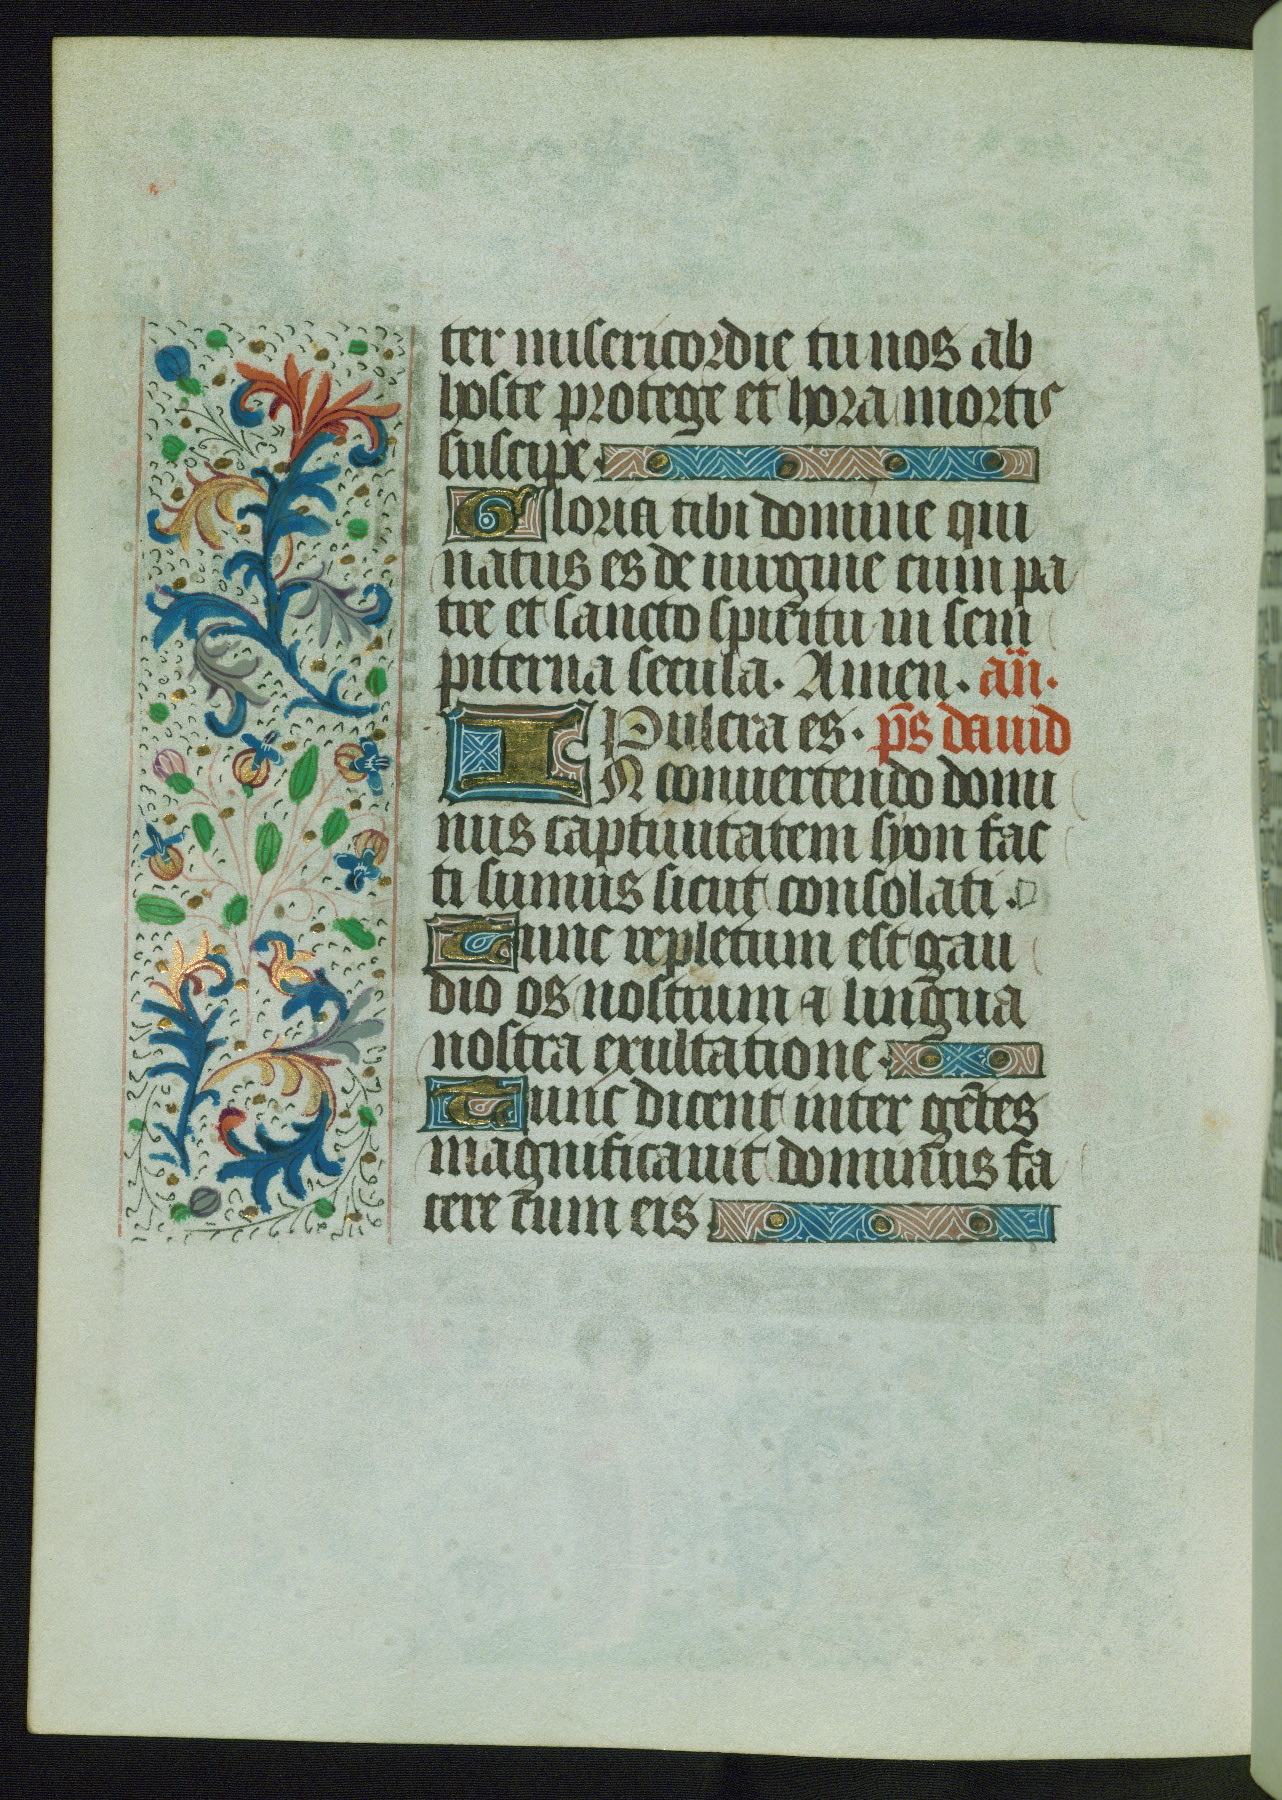 ter misericordie tu nos ab
hoste protege et hora mortis
suscipe.
Gloria tibi domine qui
natus es de uirgine cum pa
tre et sancto spiritu in sem
piterna secula. Amen. añ.
Pulcra es. p̃s dauid
IN conuertendo domi
nus captiuitatem syon fac
ti sumus sicut consolati.
Tunc repletum est gau
dio os nostrum ⁊ lingua
nostra exultatione.
Tunc dicent inter gẽtes
magnificauit dominus fa
cere cum eis